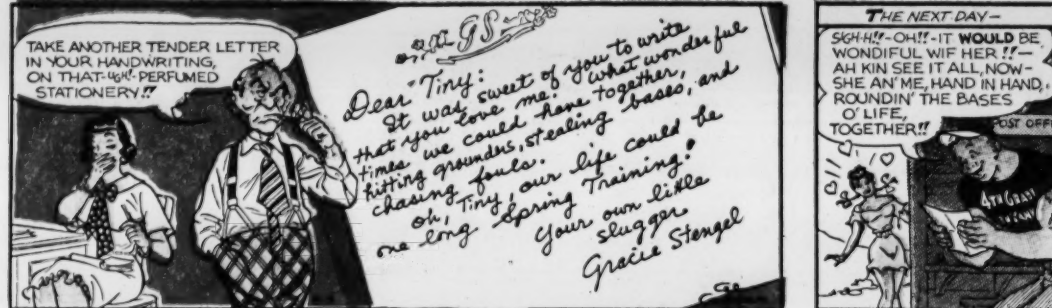 TAKE ANOTHER TENDER LETTER
IN YOUR HANDWRITING,
ON THAT-UGH!-PERFUMED
STATIONERY!!
GS
Dear Tiny:
It was sweet of you to write
that you love me! What wonderful
times we could have together,
hitting grounders, stealing bases, and
chasing fouls.
Oh, Tiny, our life could be
one long Spring Training!
Your own little
slugger
Gracie Stengel
THE NEXT DAY—
S/GH-H!!-OH!!-IT WOULD BE
WONDIFUL WIF HER!!—
AH KIN SEE IT ALL, NOW-
SHE AN' ME, HAND IN HAND,
ROUNDIN' THE BASES
O' LIFE,
TOGETHER!!
OST OFF
4TH GRADE